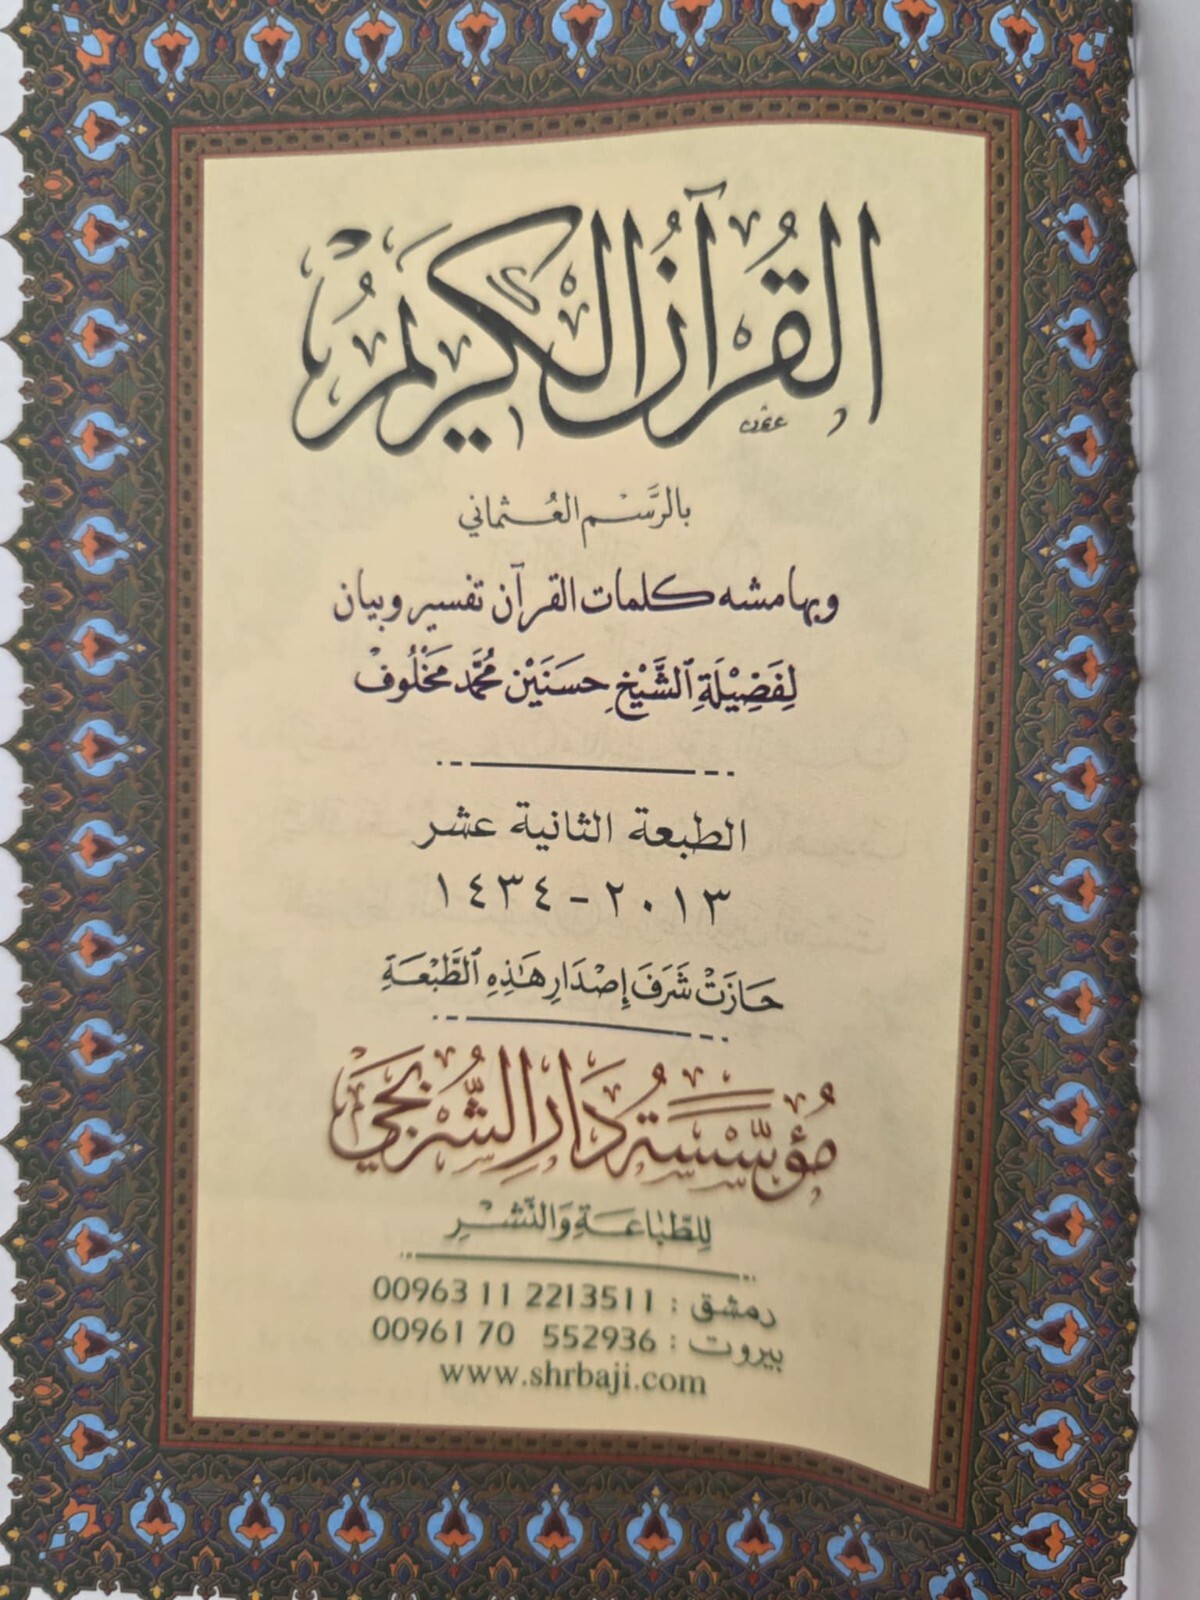 القُرآنُ الكَرِيمُ
بالرَّسْمِ العُثماني
وبهامشه كلمات القرآن تفسير وبيان
لِفَضِيْلَةِ ٱلشَّيْخِ حَسَنَيْن مُحَمَّد مَخْلُوفْ
الطبعة الثانية عشر
١٤٣٤ - ٢٠١٣
حَازَتْ شَرَفَ إِصْدَارِ هَذِهِ ٱلطَّبْعَةِ
مُؤسَّسَة دَار الشُّرْبَجِي
لِلطِّبَاعَةِ وَالنَّشْرِ
دمشق : 00963 11 2213511
بيروت : 00961 70 552936
www.shrbaji.com